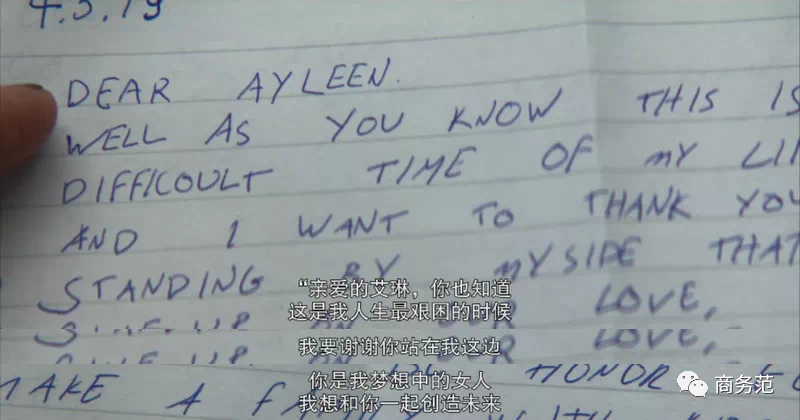 4.3.19
DEAR AYLEEN.
WELL AS YOU KNOW THIS IS
DIFFICOULT TIME OF MY LI
AND I WANT TO THANK YOU
STANDING BY MY SIDE THAT
“亲爱的艾琳，你也知道
这是我人生最艰困的时候
LOVE,
我要谢谢你站在我这边
LOVE,
你是我梦想中的女人
HONOR
我想和你一起创造未来
MAKE A
商务范